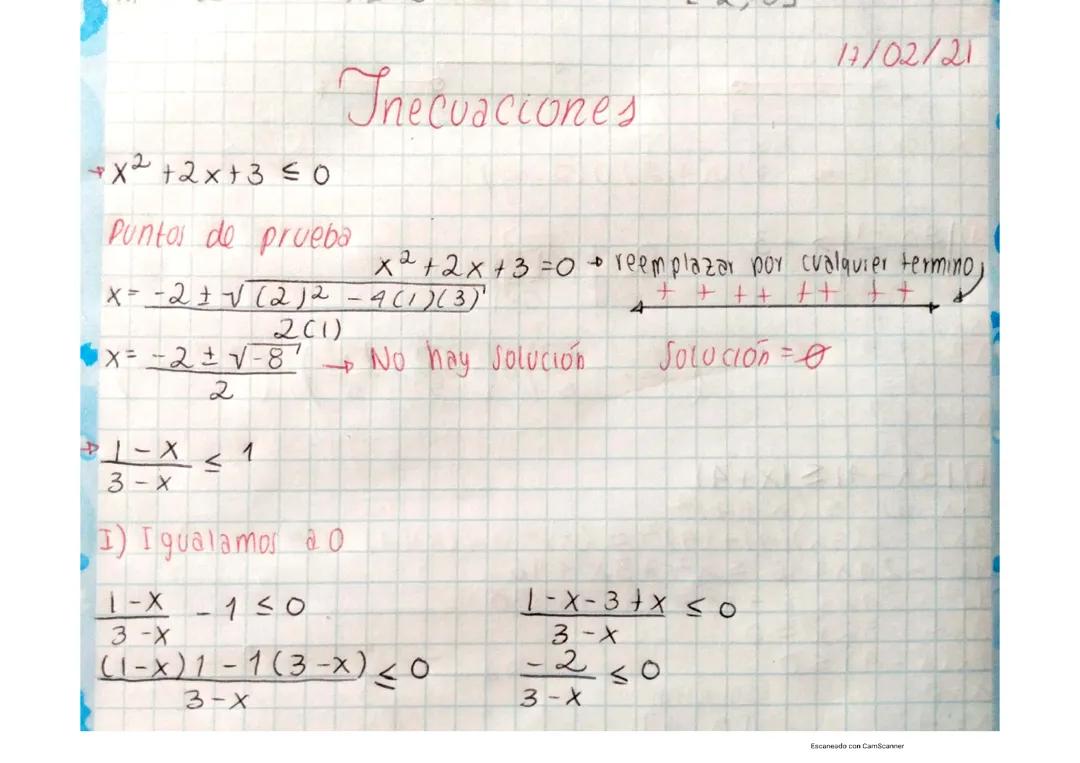 17/02/21
Inecuaciones
→ x² + 2x + 3 ≤ 0
Puntos de prueba
x² + 2x + 3 = 0 → reemplazar por cualquier termino
x = (-2 ± √((2)² - 4(1)(3))) / 2(1)
+ + + + + + + +
x = (-2 ± √-8) / 2 → No hay solución Solución = ∅
→ (1 - x) / (3 - x) ≤ 1
I) Igualamos a 0
(1 - x) / (3 - x) - 1 ≤ 0
((1 - x)1 - 1(3 - x)) / (3 - x) ≤ 0
(1 - x - 3 + x) / (3 - x) ≤ 0
-2 / (3 - x) ≤ 0
Escaneado con CamScanner